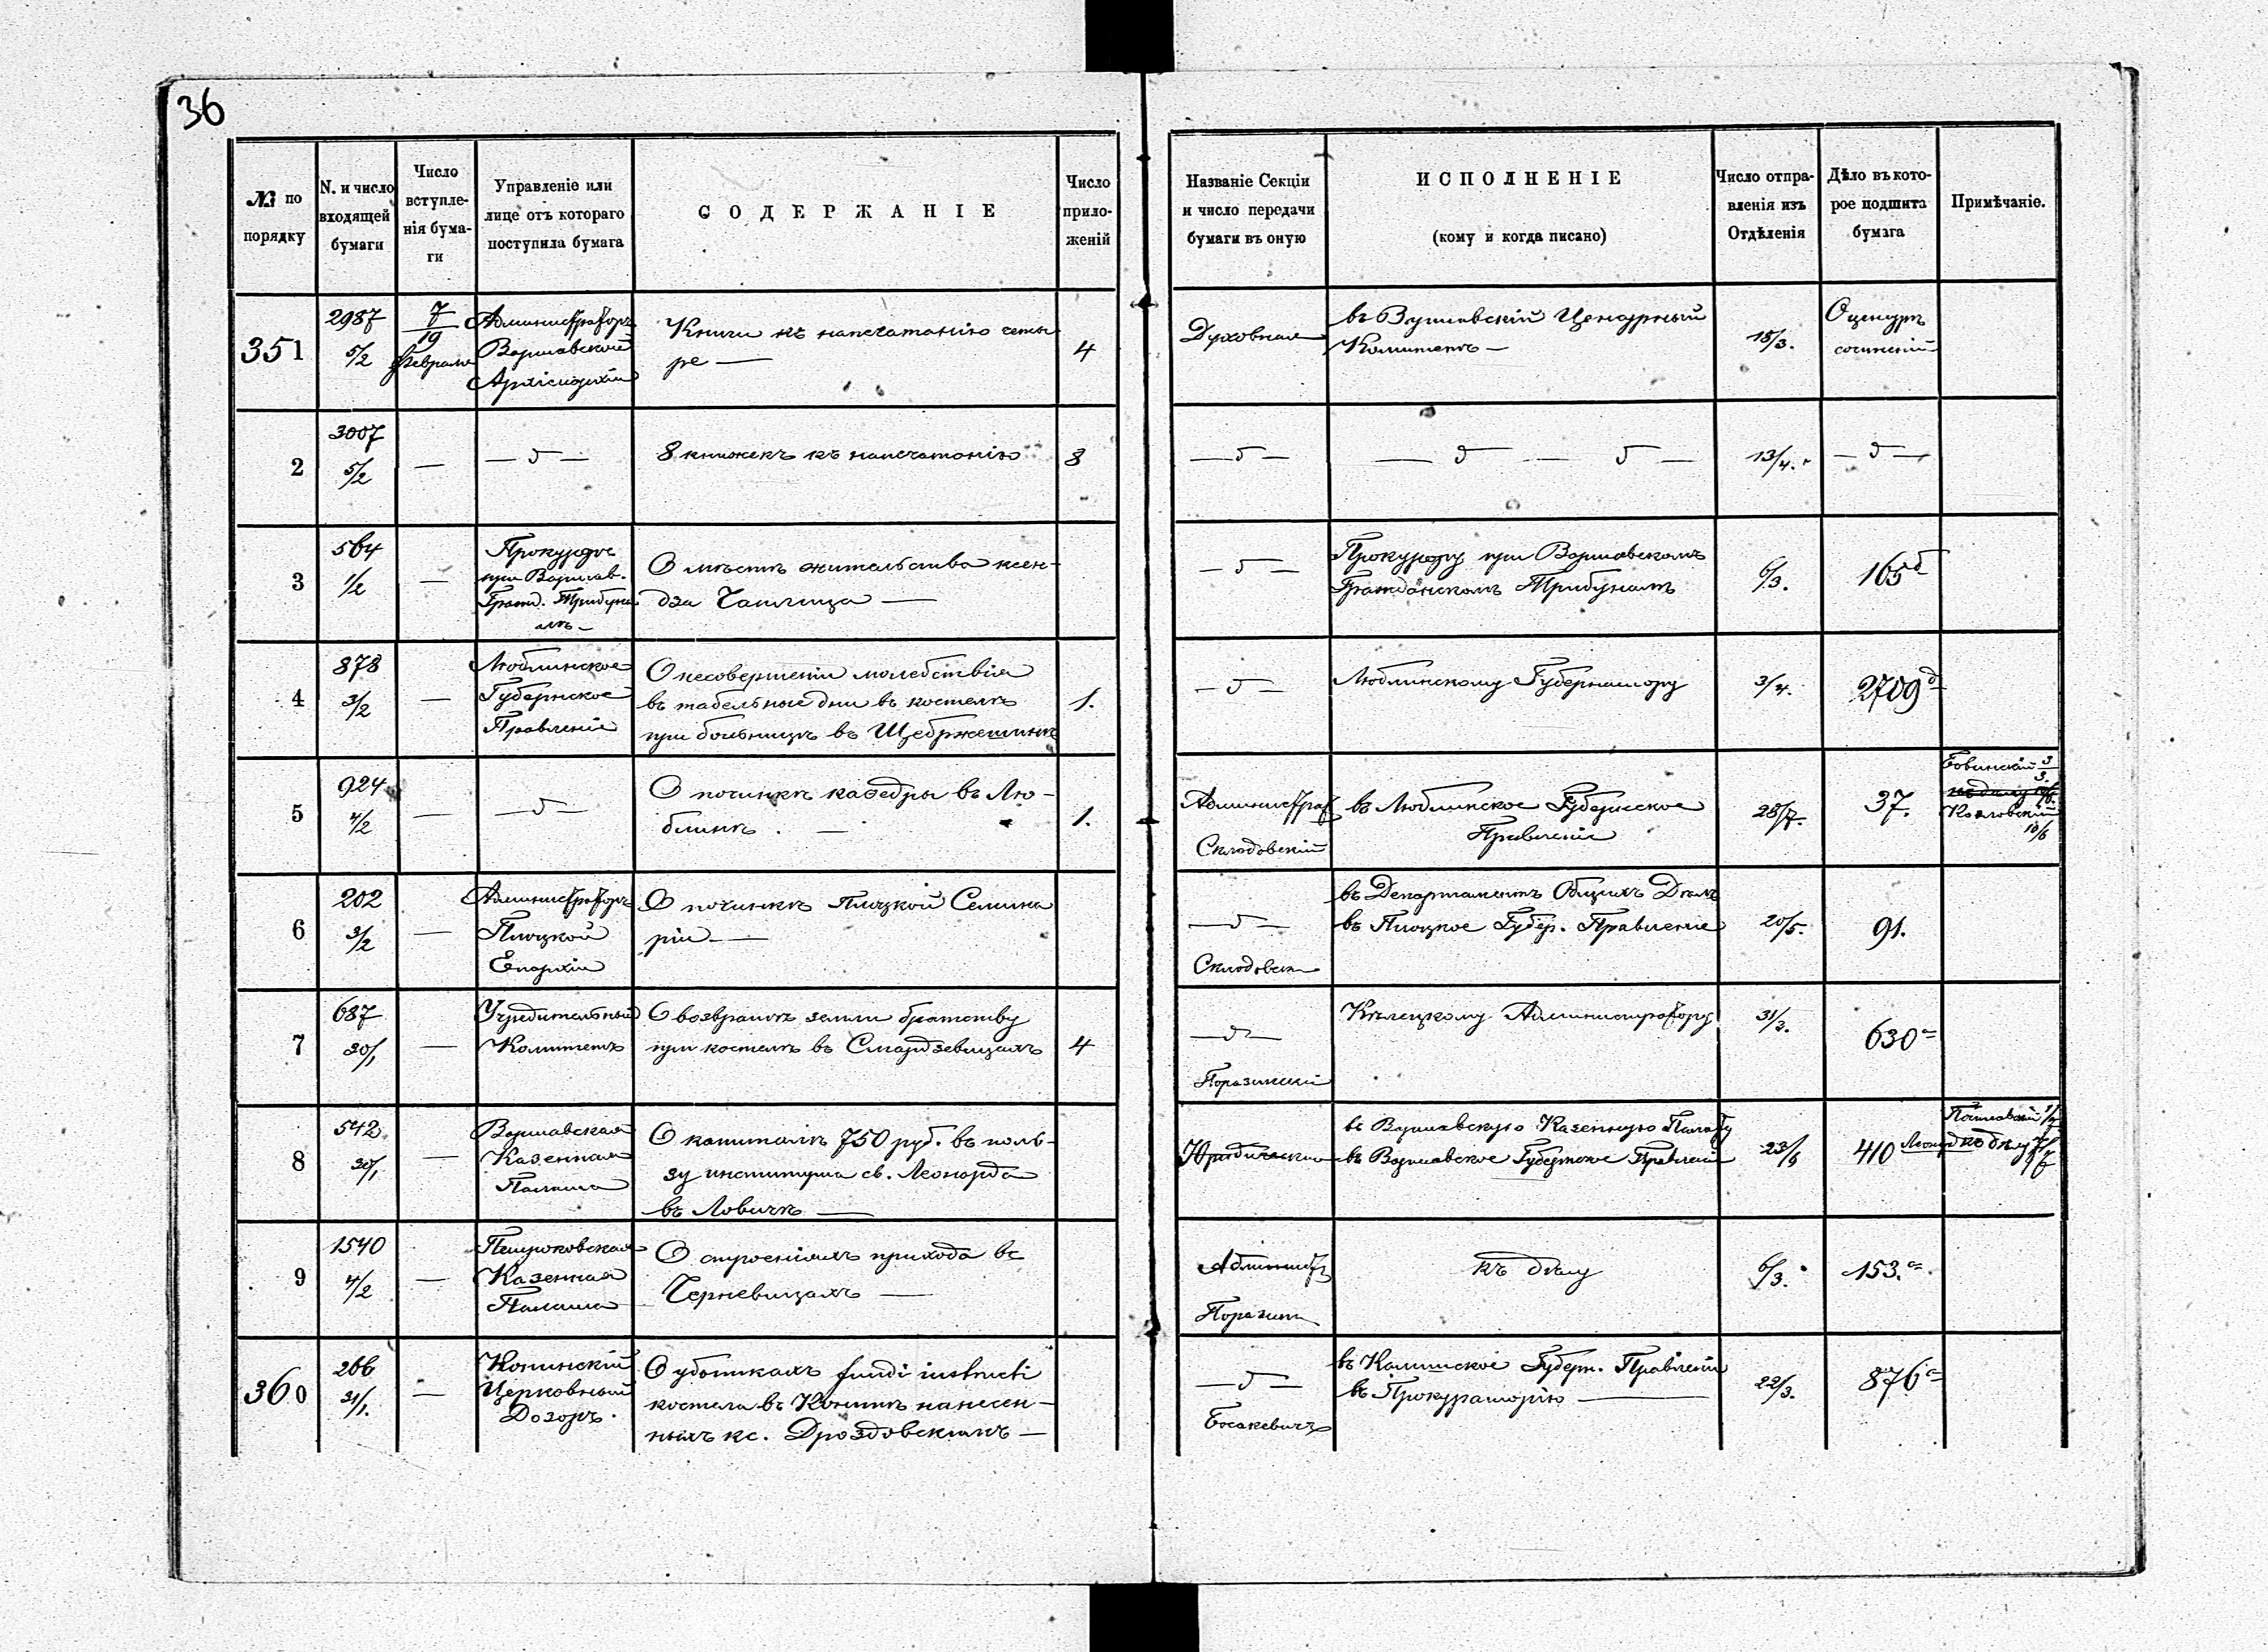 36
№ по порядку
N. и число входящей бумаги
Число вступленія бумаги
Управленіе или лице отъ котораго поступила бумага
СОДЕРЖАНІЕ
Число приложеній
Названіе Секціи и число передачи бумаги въ оную
ИСПОЛНЕНІЕ
(кому и когда писано)
Число отправленія изъ Отдѣленія
Дѣло въ которое подшита бумага
Примѣчаніе.
351
2987
5/2
7/19
Февраля
Администраторъ
Варшавской
Архіепархіи
Книги къ напечатанію четы-
ре —
4
Духовная
въ Варшавскій Цензурный
Комитетъ —
18/3.
О ценсурѣ
сочиненій
2
3007
5/2
—
— д —
8 книжекъ къ напечатанію
8
— д —
— д — д —
13/4.
— д —
3
564
1/2
—
Прокуроръ
при Варшав.
Гражд. Трибуна
лѣ —
О мѣстѣ жительства ксен-
дза
— д —
Прокурору при Варшавскомъ
Гражданскомъ Трибуналѣ
6/3.
165 б
4
878
3/2
—
Люблинское
Губернское
Правленіе
О несовершеніи молебствія
въ табельные дни въ костелѣ
при больницѣ въ Щебржешинѣ
1.
— д —
Люблинскому Губернатору
3/4.
2709 д
5
924
4/2
—
— д —
О починкѣ каѳедры въ Лю-
блинѣ. —
1.
Администрат
Склодовскій
въ Люблинское Губернское
Правленіе
28/7.
37.
3/3.
къ дѣлу
Козловскій
10/6
6
202
3/2
—
Администраторъ
Плоцкой
Епархіи
О починкѣ Плоцкой Семина
ріи —
— д —
Склодовск
въ Департаментъ Общихъ Дѣлъ
въ Плоцкое Губер. Правленіе
20/5.
91.
7
687
30/1
—
Учредительный
Комитетъ
О возвратѣ земли братству
при костелѣ въ Смардзевицахъ
4
— д —
Поразинскій
Кѣлецкому Администратору
31/3.
630 а
8
542
30/1
—
Варшавская
Казенная
Палата
О капиталѣ 750 руб. въ поль-
зу института св. Леонарда
въ Ловичѣ —
Юридическая
въ Варшавскую Казенную Палату
въ Варшавское Губернское Правленіе
23/9
410
къ дѣлу
9
1540
4/2
—
Петроковская
Казенная
Палата
О строеніяхъ прихода въ
Черневицахъ —
Админист
Поразин
къ дѣлу
6/3.
153. а
360
266
31/1.
—
Конинскій
Церковный
Дозоръ.
О убыткахъ fundi instructi
костела въ Конинѣ нанесен-
ныхъ кс. Дроздовскимъ —
— д —
Босакевичъ
въ Калишское Губерн. Правленіе
въ Прокураторію —
22/3.
876 а